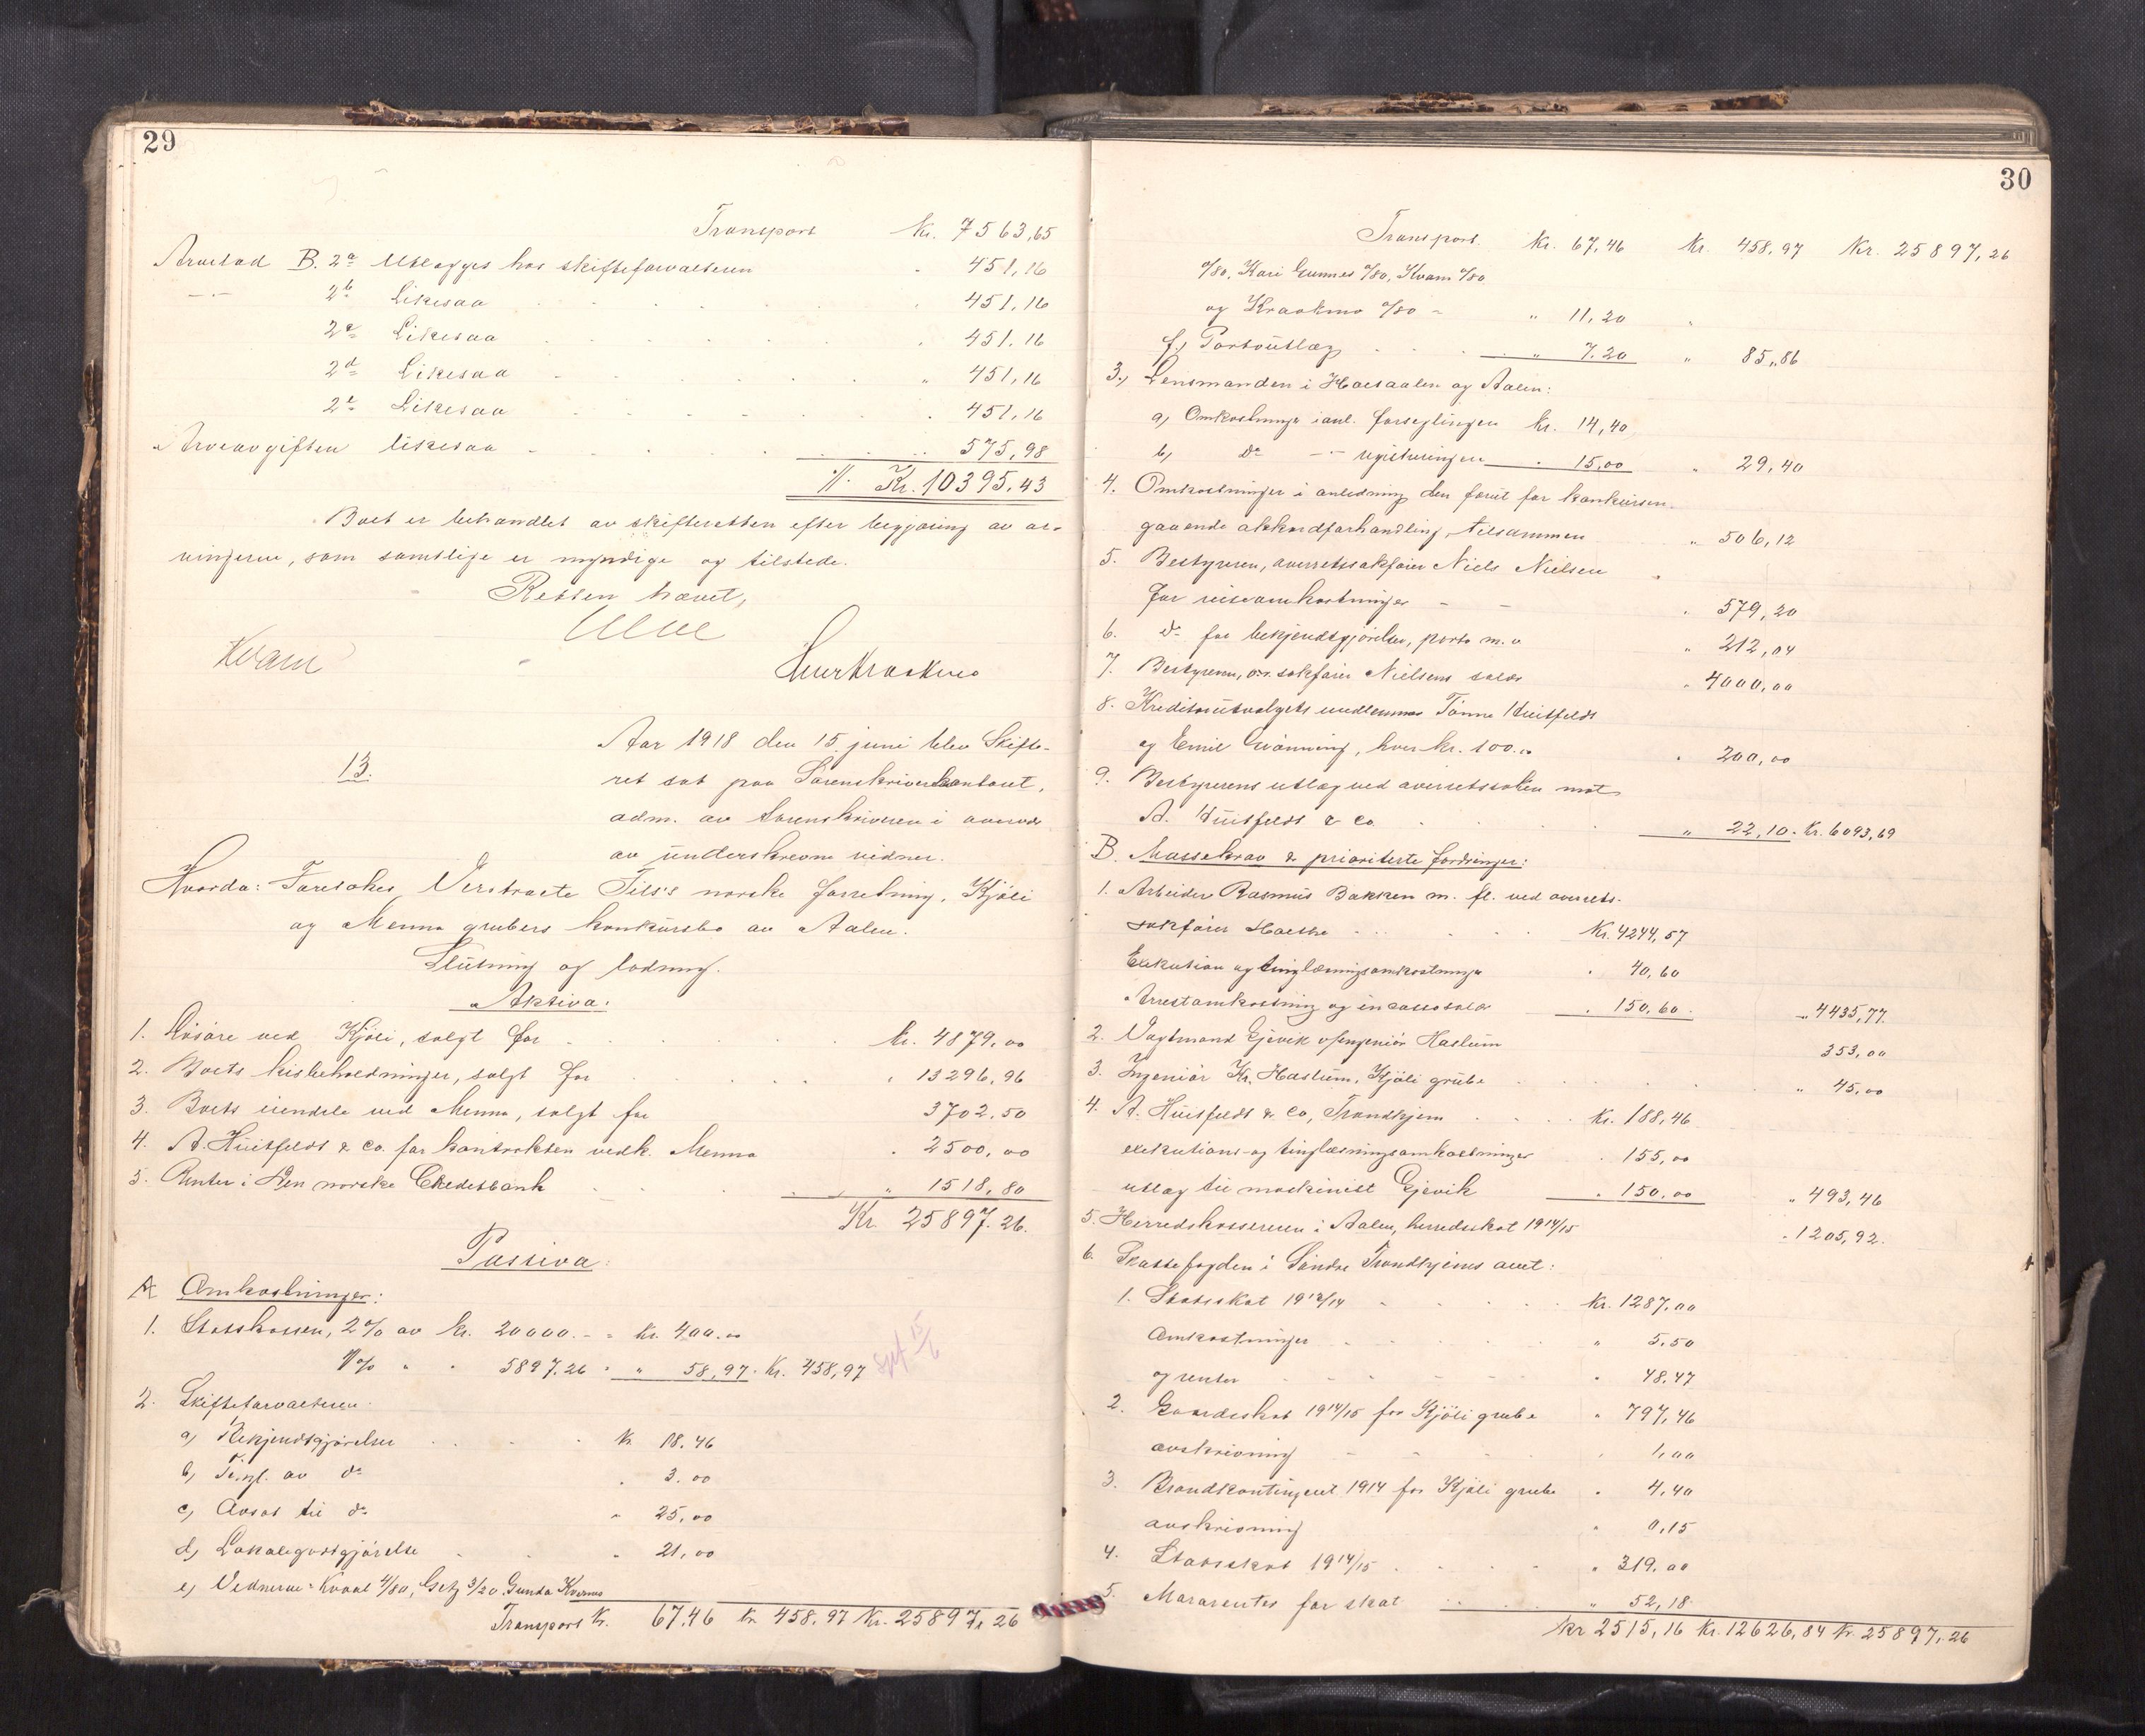 29
Transport Kr. 7563,65
Arvelod B. 2a Utlægges hos skifteforvalteren " 451,16
-"- 2b Likesaa " 451,16
2c Likesaa " 451,16
2d Likesaa " 451,16
2e Likesaa " 451,16
Arveavgiften likesaa " 575,98
Kr. 10395,43
Boet er behandlet av skifteretten efter begjæring av ar-
vingerne, som samtlige er myndige og tilstede.
Retten hævet,
Kvam
13.
Aar 1918 den 15. juni blev Skifte-
ret sat paa Sorenskriverkontoret,
adm. av sorenskriveren i overvær
av underskrevne vidner.
Hvorda: Foretokes Verstraete Fils's norske forretning, Kjøli
og Menna grubers konkursbo av Aalen.
Slutning og lodning.
Aktiva:
1. Løsøre ved Kjøli, solgt for kr. 4879,00
2. Boets kisbeholdninger, solgt for " 13296,96
3. Boets eiendele ved Menna, solgt for 3702,50
4. A. Huitfeldt & Co. for kontrakten vedk. Menna " 2500,00
5. Renter i Den norske Creditbank " 1518,80
Kr. 25897.26.
Passiva:
A Omkostninger:
1. Statskassen, 2% av kr. 20000.- = Kr. 400.00
1% " " 5897.26 = " 58,97. Kr. 458,97
15/6
2. Skifteforvalteren:
a) Bekjendtgjørelse Kr 18.46
b) Tingl. av do " 3.00
c) Avsat til do " 25,00
d) Lokalegodtgjørelse " 21,00
e) Vidnerne: Kvaal 4/80, Getz 3/20 Gunda Kvernes
Transport Kr. 67.46 kr 458.97 Kr. 25897,26
30
Transport Kr. 67,46 Kr. 458,97 Kr. 25897,26
0/80, Kari Gunnes 0/80, Kvam 0/80
og Kraakmo 0/80 - " 11,20 "
f) Portoutlæg " 7.20 " 85,86
3.) Lensmanden i Holtaalen og Aalen:
a) Omkostninger i anl. forseglingen kr. 14,40
b) do -"- registeringen " 15,00 " 29,40
4. Omkostninger i anledning den forut for konkursen
gaaende akkordforhandling, tilsammen " 506,12
5. Bestyreren, overretssakfører Niels Nielsen
for reiseomkostninger - - " 579,20
6. do for bekjendtgjørelser, porto m.v " 212,04
7. Bestyreren, o.r. sakfører Nielsens salær " 4000,00
8. Kreditorutvalgets medlemmer Tønne Huitfeldt
og Emil Grønning, hver kr. 100.00 " 200,00
9. Bestyrerens utlæg ved overretssaken mot
A. Huitfeldt & Co. " 22,10. Kr. 6093,69
B. Massekrav & prioriterte fordringer:
1. Arbeider Rasmus Bakken m. fl. ved overrets-
sakfører Kr. 4244,57
Exekution og tinglæsningsomkostninger " 40,60
Arrestomkostning og incassosalær " 150,60. " 4435,77.
2. Vagtmand Gjevik v/ingeniør Haslum 353,00
3. Ingeniør Kr. Haslum, Kjøli grube " 45,00
4. A. Huitfeldt & Co, Trondhjem Kr. 188,46
exekutions- og tinglæsningsomkostninger " 155,00
utlæg til maskinist Gjevik " 150,00 " 493,46
5. Herredskassereren i Aalen, herredsskat 1914/15 " 1205,92.
6. Skattefogden i Søndre Trondhjems amt:
1. Statsskat 1913/14 Kr. 1287,00
Omkostninger " 5,50
og renter " 48,47
2. Gaardsskat 1914/15 for Kjøli grube " 797,46
avskrivning " 1,00
3. Brandkontingent 1914 for Kjøli grube " 4,40
avskrivning " 0,15
4. Statsskat 1914/15 " 319,00
5. Morarenter for skat " 52,18
Kr 2515,16 Kr. 12626,84 Kr. 25897,26